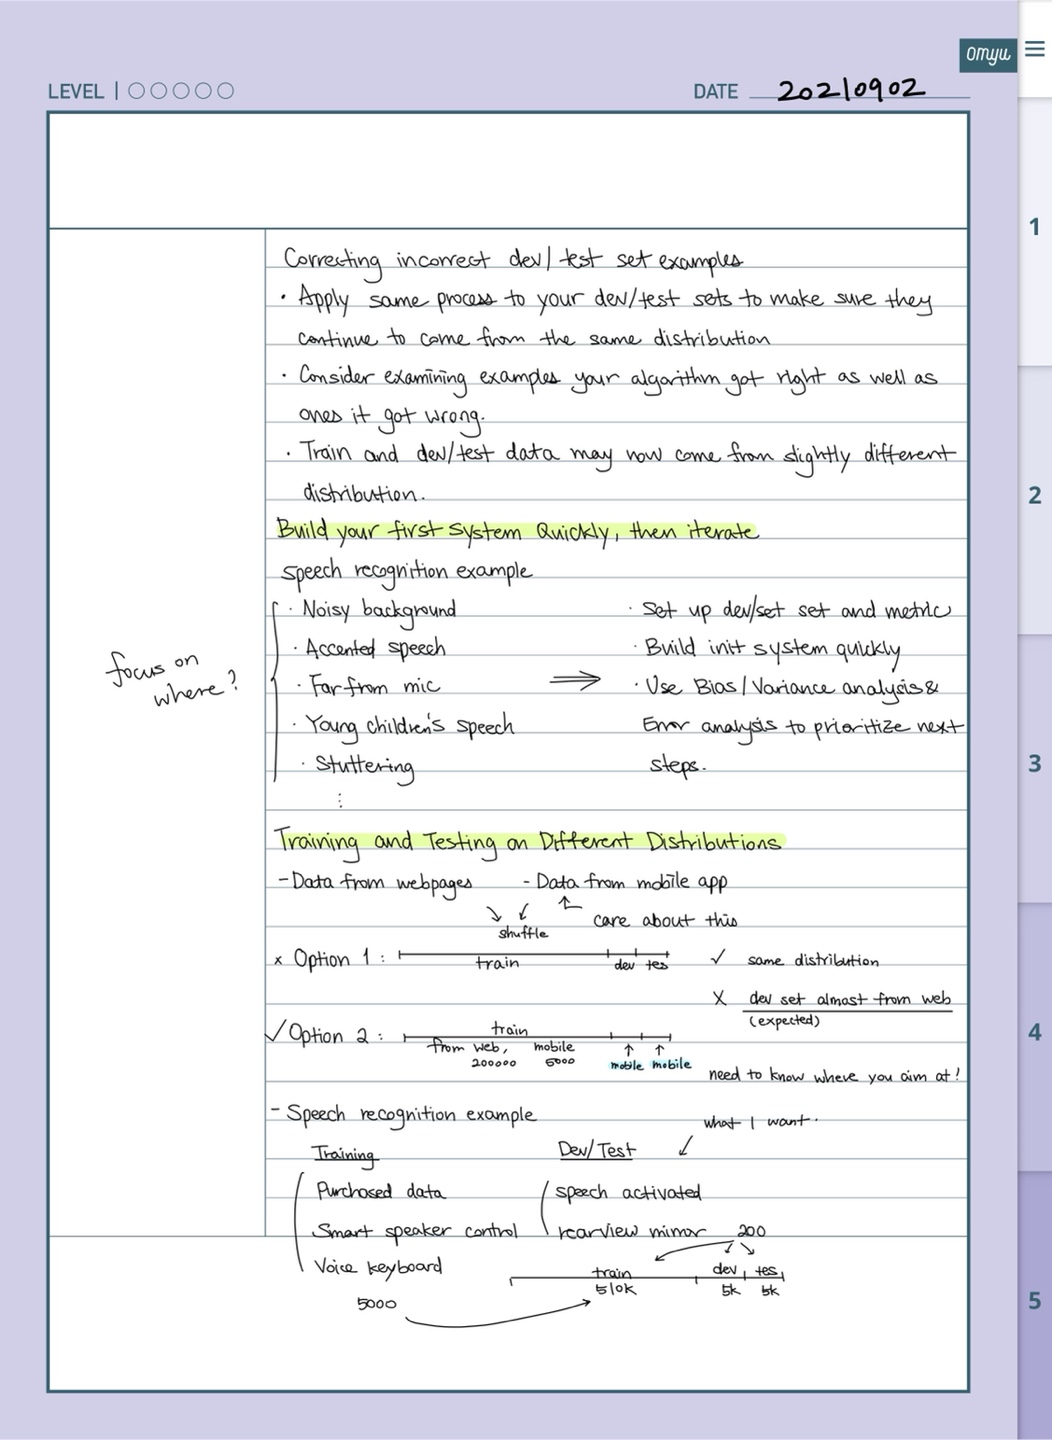 omyu
LEVEL | ○○○○○
DATE 20210902
1
2
3
4
5
Correcting incorrect dev/test set examples
· Apply same process to your dev/test sets to make sure they
continue to come from the same distribution
· Consider examining examples your algorithm got right as well as
ones it got wrong.
· Train and dev/test data may now come from slightly different
distribution.
Build your first system Quickly, then iterate
speech recognition example
focus on
where?
· Noisy background
· Accented speech
· Far from mic
· Young children's speech
· Stuttering
⋮
⇒
· Set up dev/set set and metric
· Build init system quickly
· Use Bias/Variance analysis &
Error analysis to prioritize next
steps.
Training and Testing on Different Distributions
- Data from webpages - Data from mobile app
↘ ↙ ↑ care about this
shuffle
x Option 1 : train dev tes ✓ same distribution
X dev set almost from web
(expected)
✓ Option 2 : train
from web, mobile ↑ ↑
200000 5000 mobile mobile
need to know where you aim at!
- Speech recognition example
what I want.
Training Dev/Test ↙
Purchased data speech activated
Smart speaker control rearview mirror 200
Voice keyboard
train dev tes
510k 5k 5k
5000